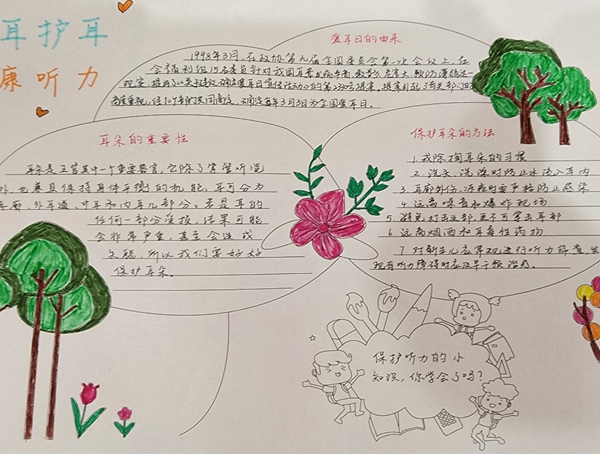 耳护耳
康听力
爱耳日的由来
1998年3月,在政协第九届全国委员会第一次会议上,在
会福利组15名委员针对我国耳
高度重视,经10个部门共同商定,确定每年3月3日为全国爱耳日。
耳朵的重要性
耳朵是五官其中一个重要器官,它除了掌管听觉
外也兼具保持身体平衡的机能,耳可分为
耳廓、外耳道、中耳和内耳几部分,若是耳的
任何一部分受损,后果可能
会非常严重,甚至会造成
失聪,所以我们要好好
保护耳朵。
保护耳朵的方法
1.戒除掏耳朵的习惯
2.洗头、洗澡时防止水流入耳内
3.耳部外伤、冻疮时要严格防止感染
4.远离噪音和爆炸现场
5.避免打击头部,更不可掌击耳部
6.远离烟酒和耳毒性药物
7.对新生儿应常规进行听力筛查,
现有听力障碍时应及早干预治疗。
保护听力的小
知识,你学会了吗?